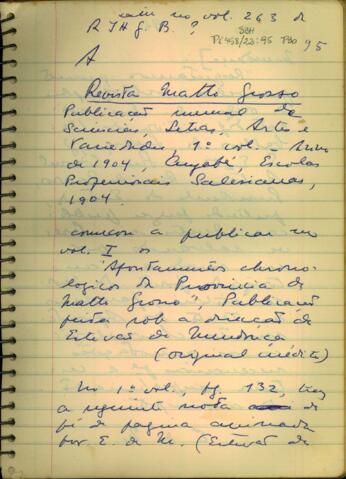 saiu no vol. 263 da
R I H G B. ?
SBH
Pi 458 / 23:95 P30
95
A
Revista Matto Grosso
Publicação mensal de
Sciencias, Letras, Artes e
Variedades, 1º vol - Anno
de 1904, Cuyabá, Escolas
Profissionais Salesianas,
1904
começou a publicar no
vol. I os
"Apontamentos chrono-
logicos da Provincia de
Matto Grosso", Publicação
feita sob a direcção de
Estevão de Mendonça
(original inédito)
No 1º vol, pg. 132, traz
a seguinte nota de
pé de pagina assinada
por E. de M. (Estevão de